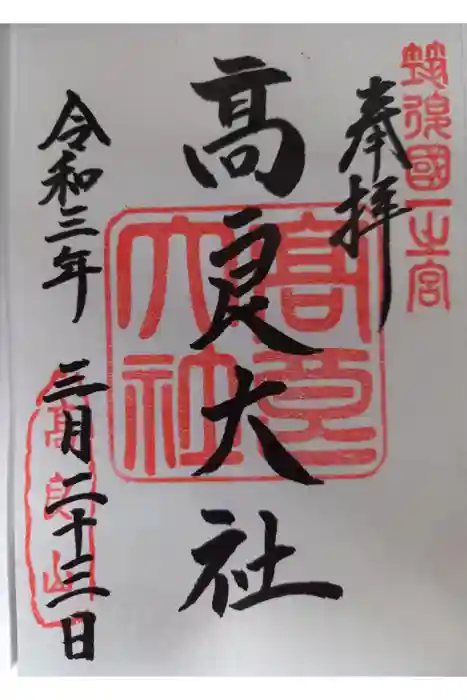 筑後國一之宮
奉拝
高良大社
高良大社
令和三年 三月二十三日
高良山